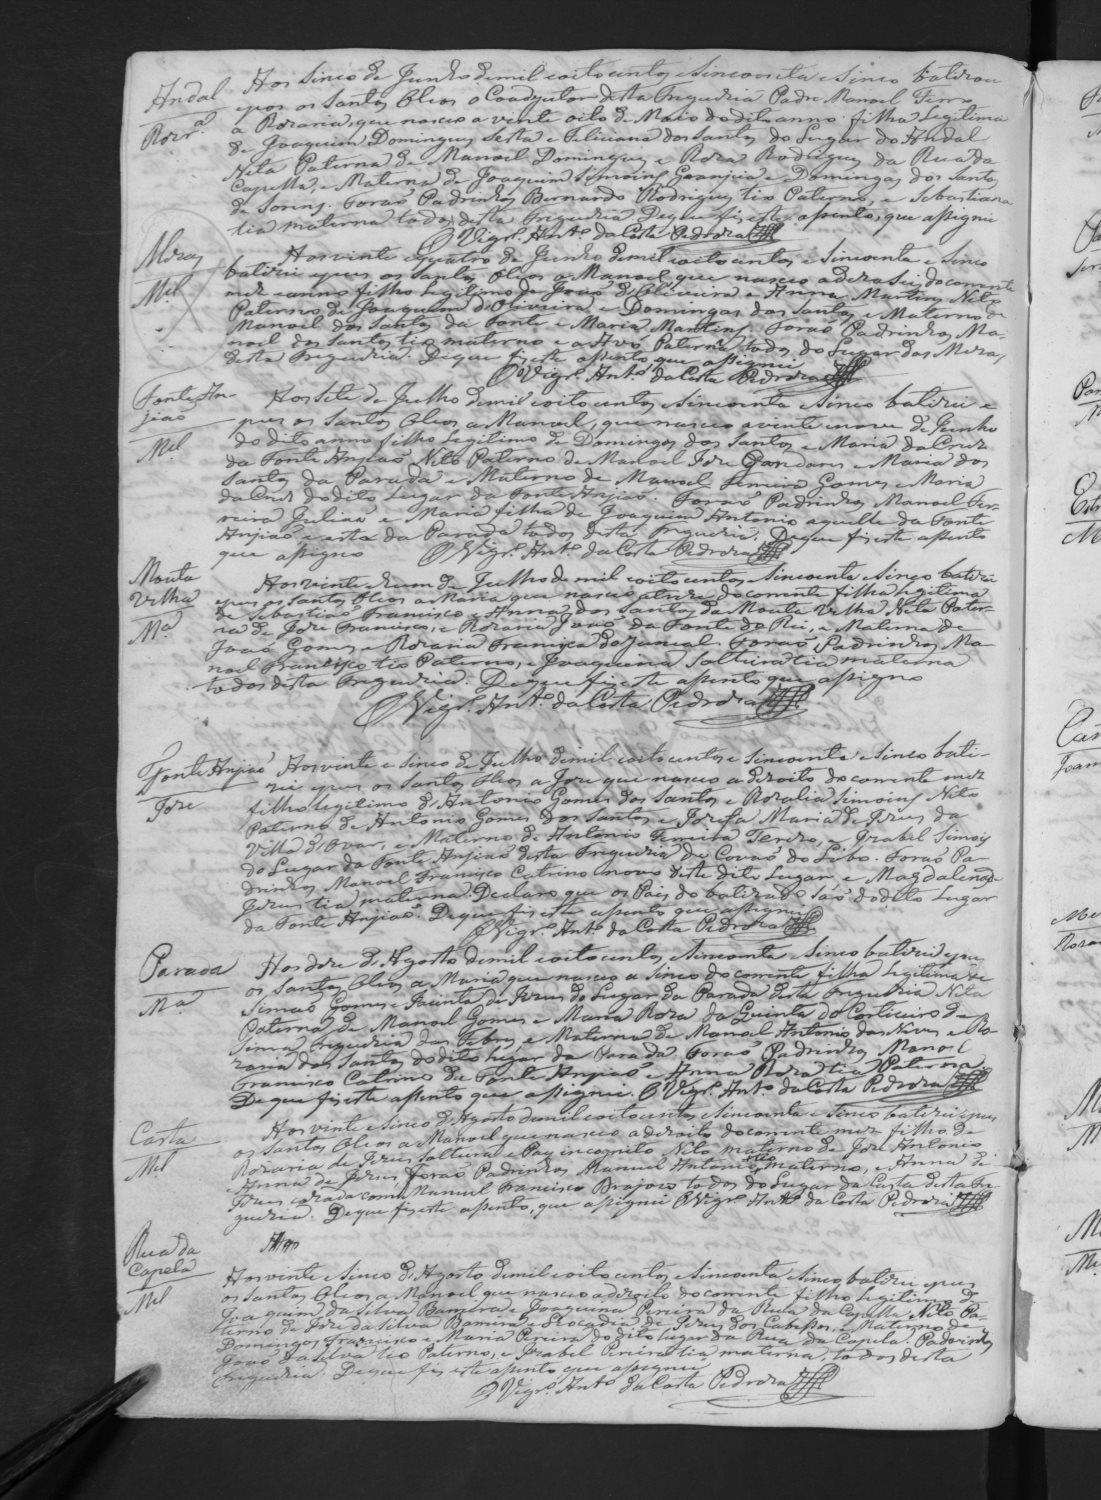 Andal
Rozr.ª
Aos sinco de Junho de mil e oito centos e sincoenta e sinco batizou
e pos os Santos Oleos o Coadjutor desta Freguezia Padre Manoel Ferra
a Rozaria, que nasceo a vente oito de Maio do dito anno filha legitima
de Joaquim Domingues Sesta e Feliciana dos Santos do Lugar do Andal
Neta Paterna de Manoel Domingues e Roza Rodrigues da Rua da
Capella, e Materna de Joaquim Simoins Granjeia e Domingas dos Santos
de Sorins. Foraõ Padrinhos Bernardo Rodrigues tio Paterno, e Sebastiana
tia materna todos desta Freguezia De que fis este asento, que asignei
O Vigr.º Ant.º da Costa Pedroza
Mezas
Mel
Aos vinte e quatro de Junho de mil e oito centos e Sincoenta e Sinco
batizei e pus os santos Oleos a Manoel, que nasceo a dezaseis do corrente
mez e anno filho legitimo de Joaõ d'Oliveira e Anna Martins Neto
Paterno de Joaquim d'Oliveira e Domingas dos Santos, e Materno de
Manoel dos Santos da Fonte e Maria Martins. Foraõ Padrinhos Ma-
noel dos Santos tio materno e a Avó Paterna todos do Lugar das Mezas
desta Freguezia. De que fis este asento que asignei
O Vigr.º Ant.º da Costa Pedroza
Fonte An-
jiaõ
Mel
Aos Sete de Julho de mil e oito centos e Sincoenta e Sinco batizei e
pus os Santos Oleos a Manoel, que nasceo a vinte e nove de Junho
do dito anno filho legitimo de Domingos dos Santos e Maria da Cruz
da Fonte Anjiaõ Neto Paterno de Manoel Joze Dandares e Maria dos
Santos da Parada e Materno de Manoel Ferreira Gomes e Maria
da Cruz do dito Lugar da Fonte Anjiaõ. Foraõ Padrinhos Manoel Fer-
reira Juliaõ e Maria filha de Joaquim Antonio aquelle da Fonte
Anjiaõ e esta da Parada todos desta Freguezia. De que fis este asento
que asigno O Vigr.º Ant.º da Costa Pedroza
Mouta
Velha
M.ª
Aos vinte e hum de Julho de mil e oito centos e Sincoenta e Sinco batizei
e pus os Santos Oleos a Maria que nasceo a treze do corrente filha legitima
de Sebastiaõ Francisco e Anna dos Santos da Mouta Velha Neta Pater-
na de Joze Francisco e Rozaria Joaõ da Fonte do Rei, e Materna de
Joaõ Gomes e Rozaria Francisca do Juncal Foraõ Padrinhos Ma-
noel Francisco tio Paterno, e Joaquina Solteira tia materna
todos desta Freguezia. De que fis este asento que asigno
O Vigr.º Ant.º da Costa Pedroza
Fonte Anjiaõ
Joze
Aos vinte e sinco de Julho de mil e oito centos e sincoenta e Sinco bati-
zei e pus os Santos Oleos a Joze que nasceo a dezoito do corrente mez
filho legitimo d'Antonio Gomes dos Santos e Rozalia Simoins Neto
Paterno de Antonio Gomes dos Santos e Jozefa Maria de Jezus da
Villa d'Ovar, e Materno de Antonio Ferreira Terezo, e Izabel Simois
do Lugar da Fonte Anjiaõ desta Freguezia de Covaõ do Lobo. Foraõ Pa-
drinhos Manoel Francisco Catrino novo deste dito Lugar e Magdalena de
Jezus tia materna. Declaro que os Pais do batizado Saõ do dito Lugar
da Fonte Anjiaõ. De que fis este asento que asignei
O Vigr.º Ant.º da Costa Pedroza
Parada
M.ª
Aos doze d'Agosto de mil e oito centos e Sincoenta e Sinco batizei e pus
os Santos Oleos a Maria que nasceo a Sinco do corrente filha legitima de
Simaõ Gomes e Jacinta de Jezus do Lugar da Parada desta Freguezia Neta
Paterna de Manoel Gomes e Maria Roza da Quinta do Corticeiro de
Sima Freguezia das Febres e Materna de Manoel Antonio das Neves e Ro-
zaria dos Santos do dito Lugar da Parada. Foraõ Padrinhos Manoel
Francisco Catrino da Fonte Anjiaõ e Anna Roza tia Paterna
De que fis este asento que asignei. O Vigr.º Ant.º da Costa Pedroza
Costa
Mel
Aos vinte e Sinco d'Agosto de mil e oito centos e Sincoenta e Sinco batizei e pus
os Santos Oleos a Manoel que nasceo a dezoito do corrente mez filho de
Rozaria de Jezus solteira e Pay incognito Neto materno de Joze Antonio
e Anna de Jezus, foraõ Padrinhos Manuel Antonio tio materno, e Anna de
Jezus cazada com Manuel Francisco Brajozo todos do Lugar da Costa desta Fre-
guezia. De que fis este asento, que asignei O Vigr.º Ant.º da Costa Pedroza
Rua da
Capela
Mel
Aos vinte e Sinco d'Agosto de mil e oito centos e Sincoenta e Sinco batizei e pus
os Santos Oleos a Manoel que nasceo a dezoito do corrente filho legitimo de
Joaquim da Silva Bameira e Joaquina Pereira da Rua da Capella Neto Pa-
terno de Joze da Silva Bameira e Leocadia de Jezus dos Cabesos, e Materno de
Domingos Francisco e Maria Pereira do dito lugar da Rua da Capela. Padrinhos
Joaõ da Silva tio Paterno, e Izabel Pereira tia materna, todos desta
Freguezia. De que fis este asento que asignei
O Vigr.º Ant.º da Costa Pedroza